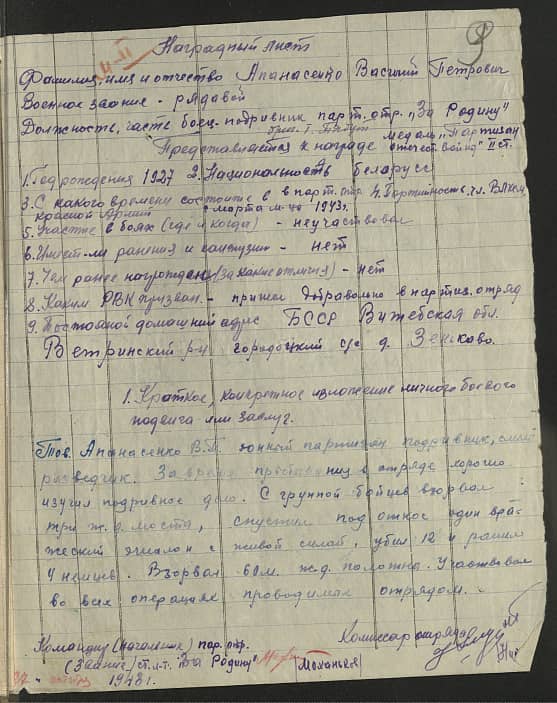 9
Наградный лист
Фамилия, имя и отчество Апанасенко Василий Петрович
Военное звание - рядавой
Должность, часть боец-подривник парт. отр. "За Родину"
Представляется к награде медаль "Партизан
отечест. войны" II ст.
1. Год рождения 1927 2. Национальность беларусс
3. С какого времени состоите в в парт. отр. 4. Партийность чл. ВЛКСМ
красной Армии с марта м-ца 1943г.
5. Участие в боях (где и когда) - неучаствовал
6. Имеет-ли ранения и контузии - нет
7. Чем ранее награжден (за какие отличия) - нет
8. Каким РВК призван - пришел добравольно в партиз. отряд
9. Постояной домашний адрес БССР Витебская обл.
Ветринский р-н городоцкий с/с д. Зеньково.
1. Краткое, конкретное изложение личного боевого
подвига или заслуг.
Тов. Апанасенко В.П. юнный партизан подривник, смелый
разведчик. За время пребования в отряде хорошо
изучил подривное дело. С группой бойцев взорвал
три ж.д. моста, спустил под откос один вра-
жеский эшалон с живой силой, убил 12 и ранил
4 немцев. Взорвал 60 м. ж.д. полотна. Участвовал
во всех операциях проводимых отрядом.
Командир (начальник) пар. отр.
Комиссар отряда
(Звание) ст. л-т. "За Родину"
1943г.